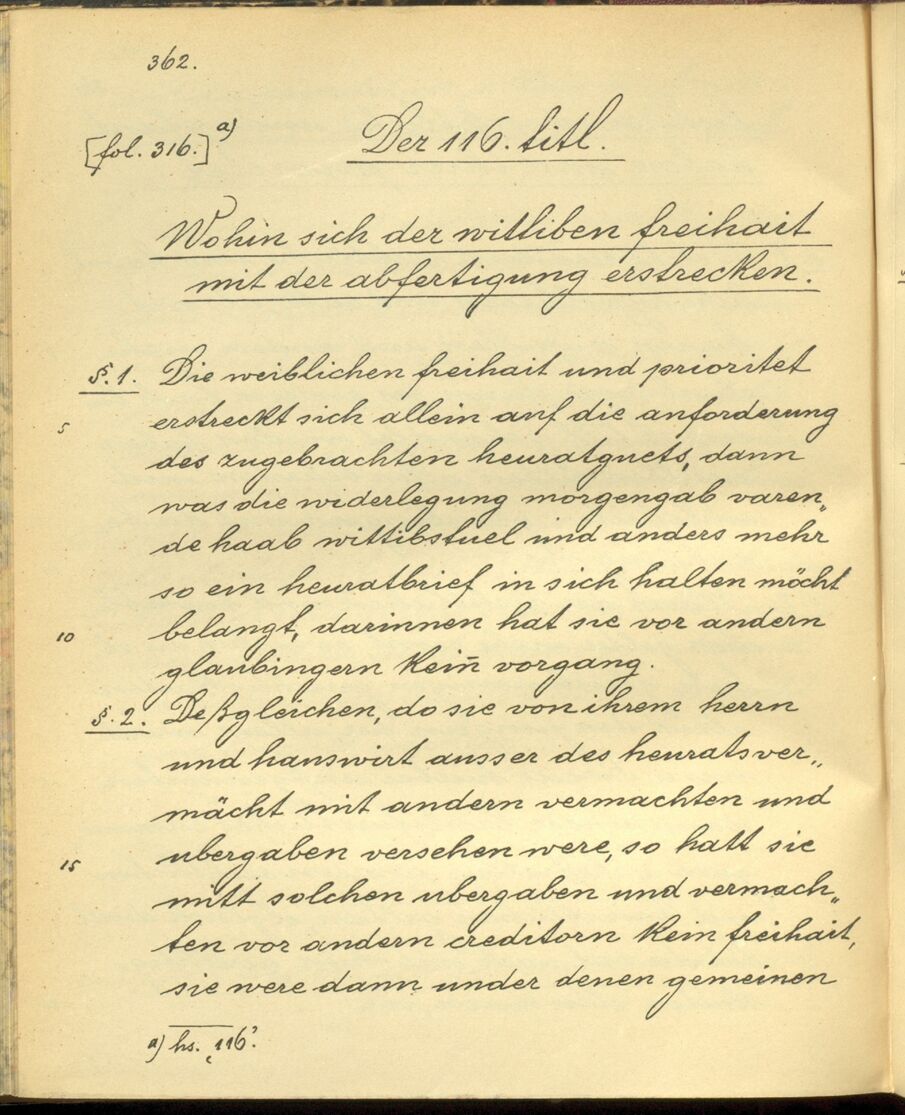 362.
[fol. 316.] a)
Der 116. titl.
Wohin sich der witliben freihait
mit der abfertigung erstrecken.
§. 1. Die weiblichen freihait und prioritet
5 erstreckt sich allein auf die anforderung
des zugebrachten heuratguets, dann
was die widerlegung morgengab varen„
de haab wittibstuel und anders mehr
so ein heuratbrief in sich halten möcht
10 belangt, darinnen hat sie vor andern
glaubingern kein̄ vorgang.
§. 2. Deßgleichen, do sie von ihrem herrn
und hauswirt ausser des heuratsver„
mächt mit andern vermachten und
15 ubergaben versehen were, so hatt sie
mitt solchen ubergaben und vermach„
ten vor andern creditorn kein freihait,
sie were dann under denen gemeinen
a) hs. ‚116‘.